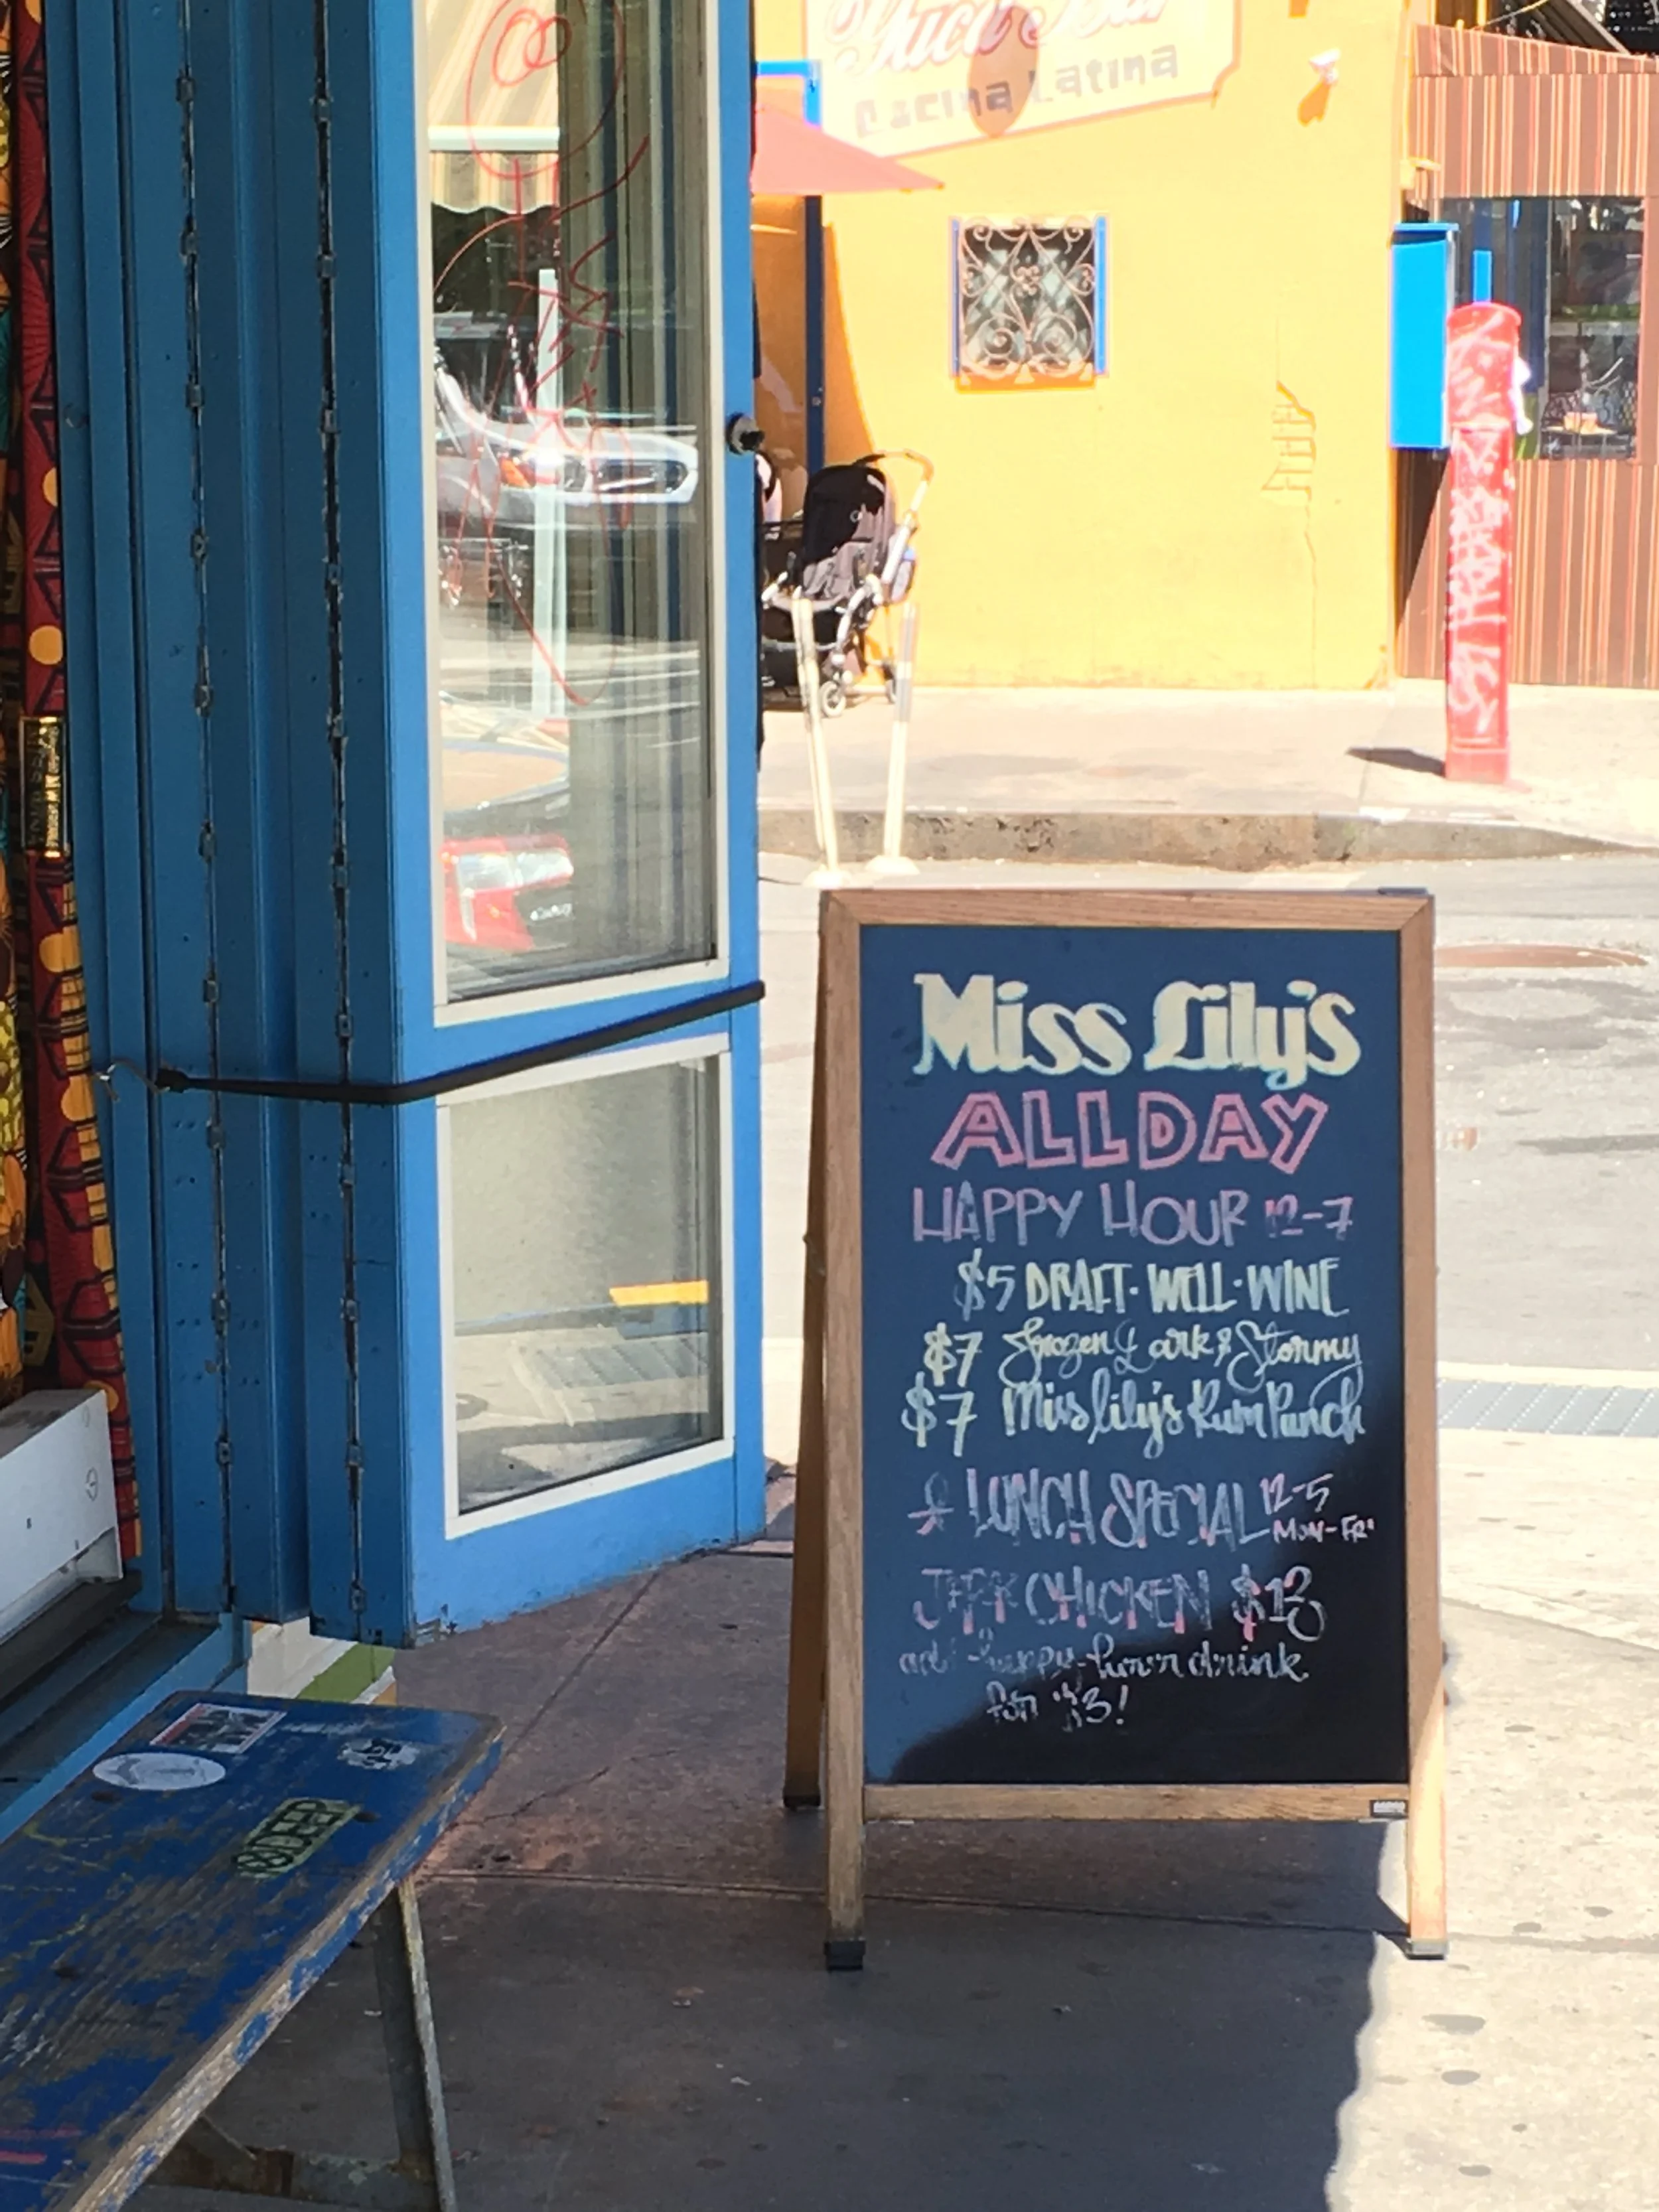 Yuca Bar
Cocina Latina
Miss Lily's
ALL DAY
HAPPY HOUR 12-7
$5 DRAFT · WELL · WINE
$7 Frozen Dark & Stormy
$7 Miss Lily's Rum Punch
LUNCH SPECIAL 12-5
MON-FRI
JERK CHICKEN $13
add happy-hour drink
for $3!